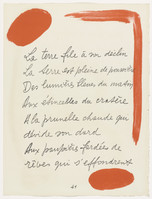 La terre file à son déclin
La terre est pleine de poussière
Des lumières bleues du matin
Aux étincelles du cratère
A la prunelle chaude qui
dévide son dard
Aux paupières fardées de
rêves qui s'effondrent